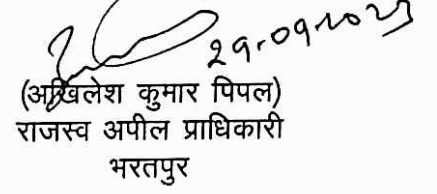 29-09-2023
(अखिलेश कुमार पिपल)
राजस्व अपील प्राधिकारी
भरतपुर